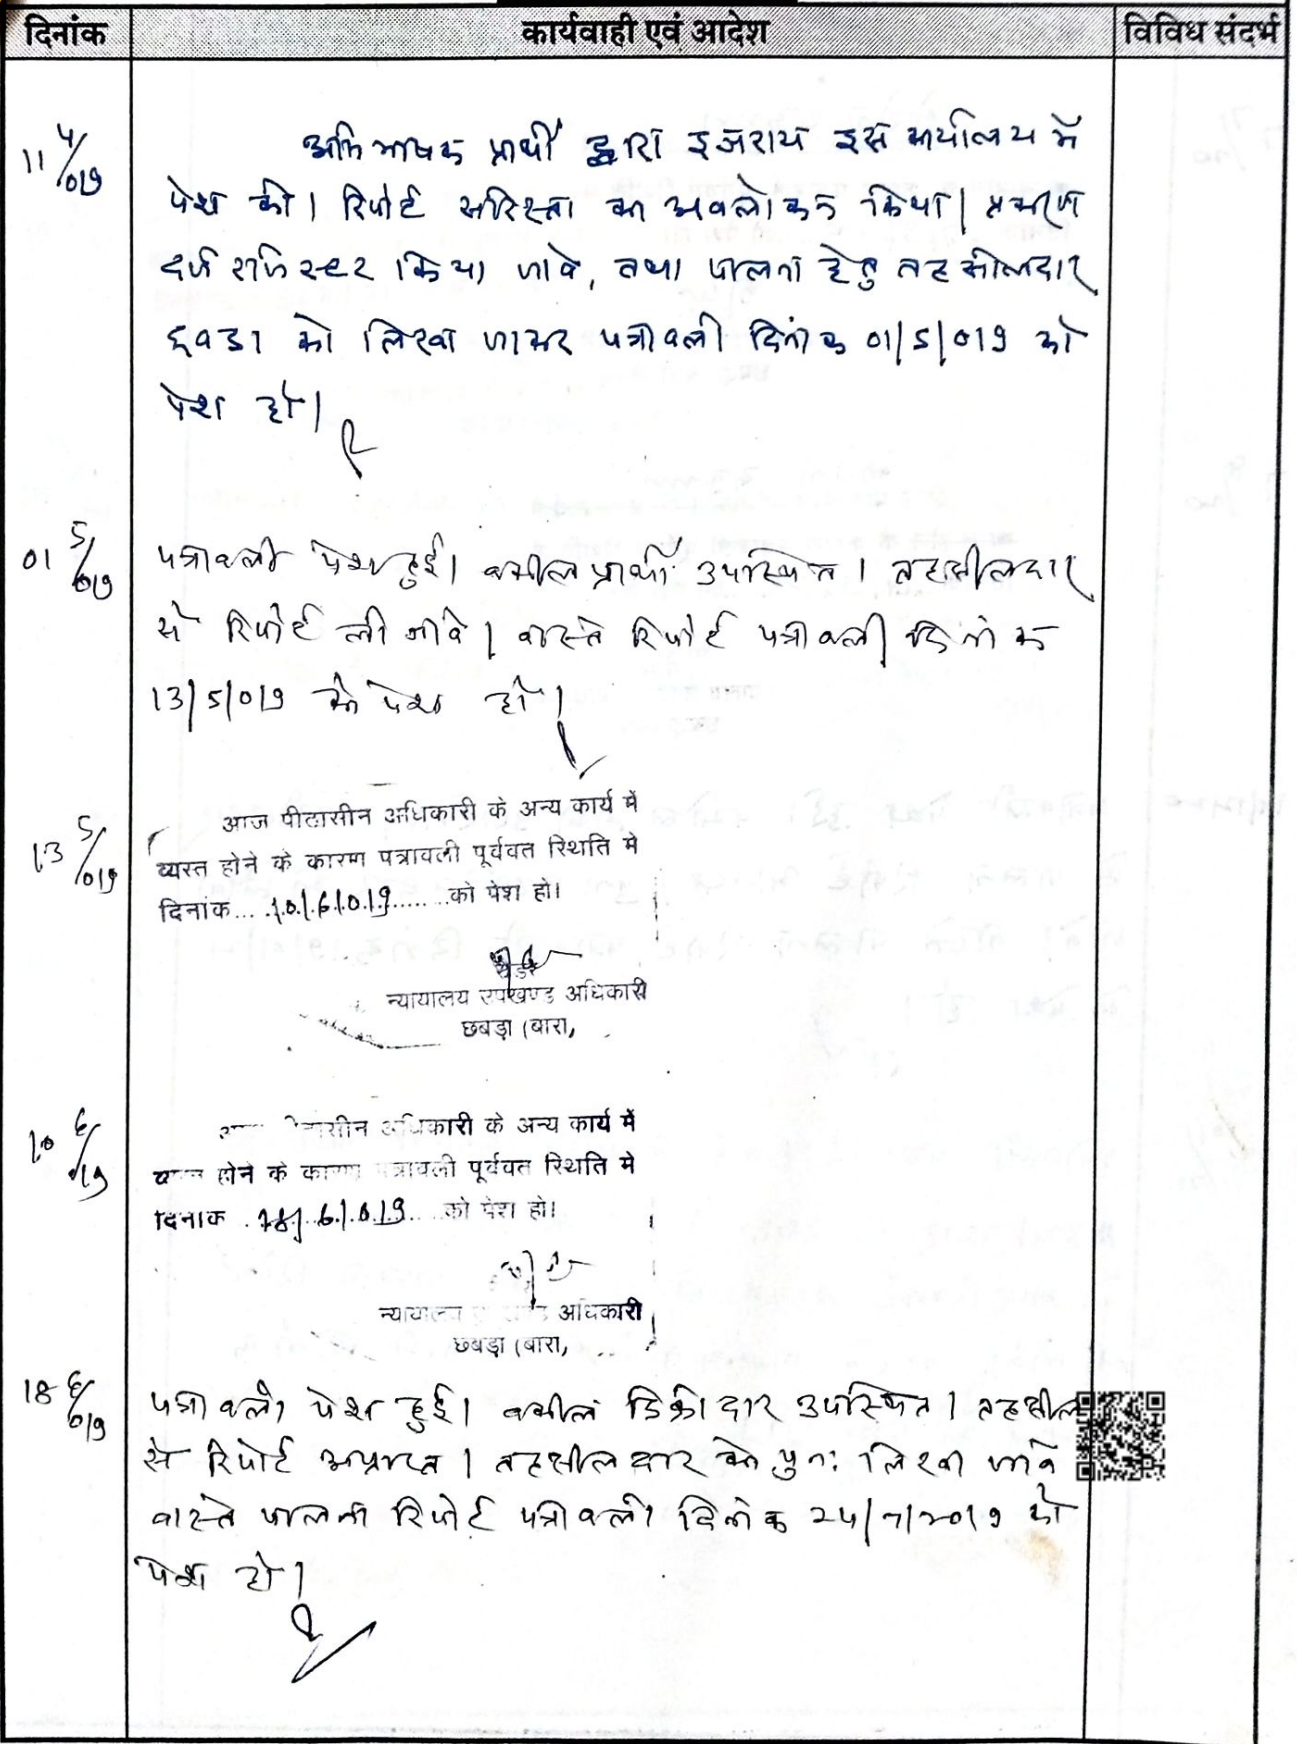 दिनांक कार्यवाही एवं आदेश विविध संदर्भ
11 4/019
अभिभाषक प्रार्थी द्वारा इजराय इस कार्यालय में
पेश की। रिपोर्ट सरिस्ता का अवलोकन किया। प्रकरण
दर्ज रजिस्टर किया जावे, तथा पालना हेतु तहसीलदार
छबडा को लिखा जाकर पत्रावली दिनांक 01/5/019 को
पेश हो।
01 5/019
पत्रावली पेश हुई। वकील प्रार्थी उपस्थित। तहसीलदार
से रिपोर्ट ली जावे। वास्ते रिपोर्ट पत्रावली दिनांक
13/5/019 को पेश हो।
13 5/019
आज पीठासीन अधिकारी के अन्य कार्य में
व्यस्त होने के कारण पत्रावली पूर्ववत स्थिति मे
दिनांक....10/6/019........को पेश हो।
न्यायालय उपखण्ड अधिकारी
छबड़ा (बारा,
10 6/019
अधिकारी के अन्य कार्य में
होने के कारण पत्रावली पूर्ववत स्थिति मे
दिनाक .18/6/019.... को पेश हो।
न्यायालय उपखण्ड अधिकारी
छबड़ा (बारा,
18 6/019
पत्रावली पेश हुई। वकील डिक्रीदार उपस्थित। तहसील
से रिपोर्ट अप्राप्त। तहसीलदार को पुनः लिखा जावे
वास्ते पालना रिपोर्ट पत्रावली दिनांक 24/7/2019 को
पेश हो।